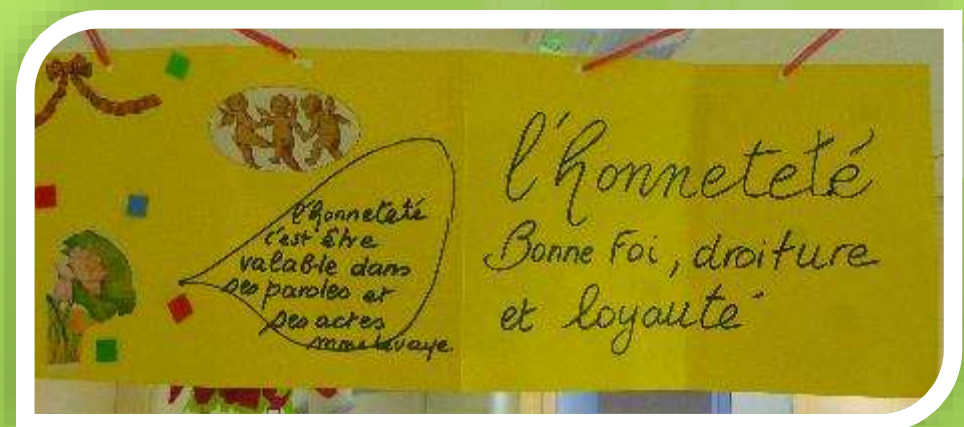 l'honneteté
c'est être
valable dans
ses paroles et
ses actes
mme
l'honneteté
Bonne Foi, droiture
et loyauté